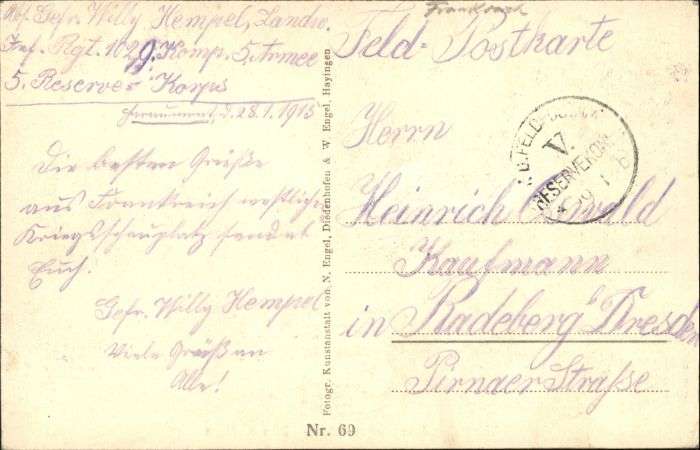 Abs. Gefr. Willy Hempel, Landw.
Inf. Rgt. 102, 9. Komp. 5. Armee
5. Reserve Korps
d. 28.1.1915
Die besten Grüße
aus Frankreich westlicher
Kriegsschauplatz sendet
Euch.
Gefr. Willy Hempel
Viele Grüße an
Alle!
Photogr. Kunstanstalt von N. Engel, Diedenhofen & W. Engel, Hayingen
Frankreich
Feld-Postkarte
Herrn
Heinrich Oswald
Kaufmann
in Radeberg b/ Dresden
Pirnaer Straße
V.
RESERVEKORPS
Nr. 69